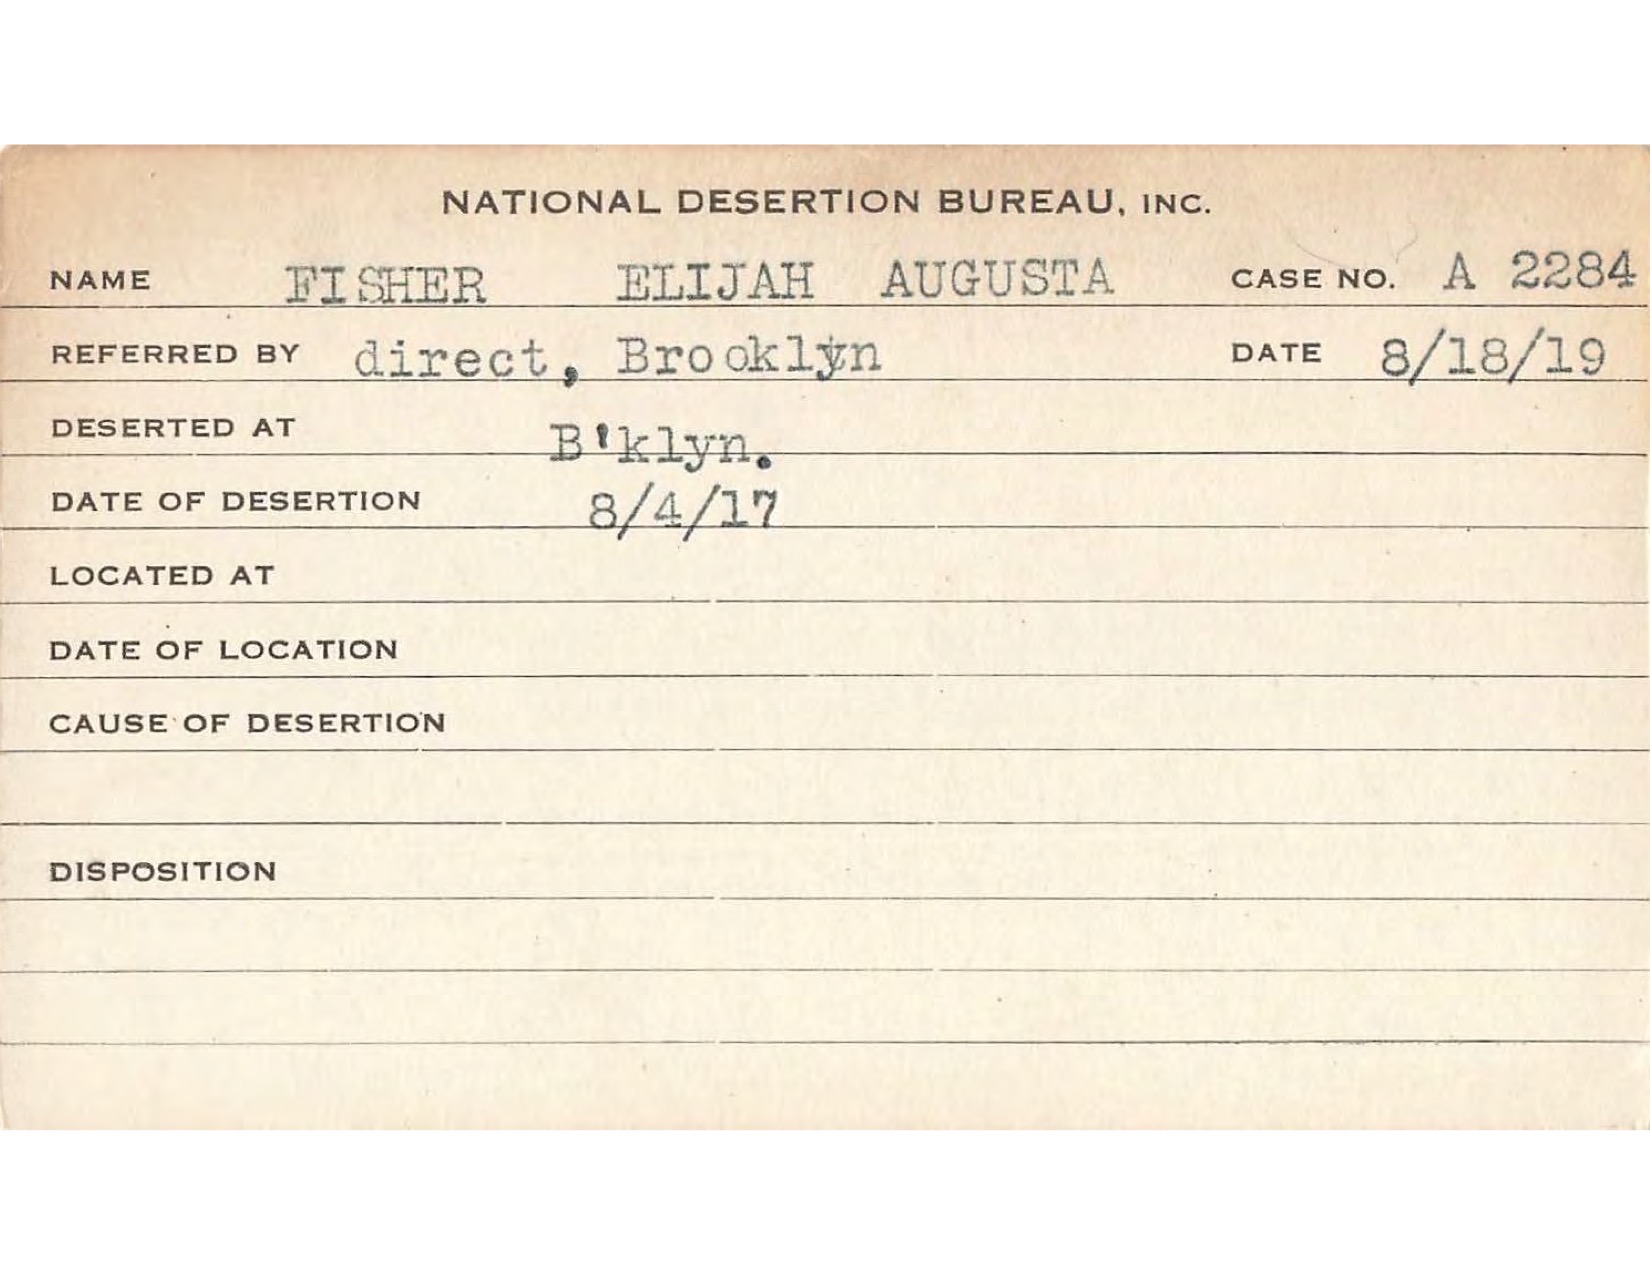 NATIONAL DESERTION BUREAU, INC.
NAME FISHER ELIJAH AUGUSTA CASE NO. A 2284
REFERRED BY direct, Brooklyn DATE 8/18/19
DESERTED AT B'klyn.
DATE OF DESERTION 8/4/17
LOCATED AT
DATE OF LOCATION
CAUSE OF DESERTION
DISPOSITION